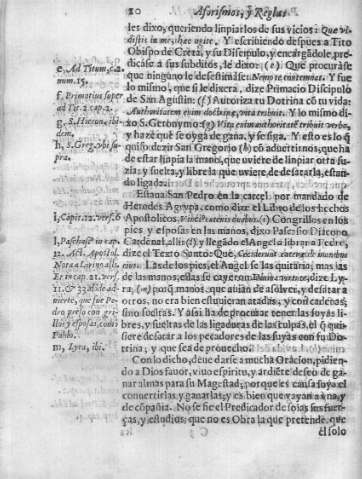 20 Aforismos, y Reglas
les dixo, queriendo limpiarlos de sus vicios: Que vi-
distis in me, hæc agite. Y escriviendo despues a Tito
Obispo de Creta, y su Discipulo, y encargãdole, pre-
dicàse a sus subditos, le dixo: (e) Que procuràse
que ninguno le desestimàse: Nemo te contemnat. Y fue
lo mismo, que si le dixera, dize Primacio Discipulo
de San Agustin: (f) Autoriza tu Dotrina cõ tu vida:
Authoritatem enim doctrinæ, vita tribuit. Y lo mismo di-
xo S. Geronymo (g) Vita enim authoritatẽ tribuit verbo,
y hazê quê se oyga de gana, y se siga. Y esto es lo q̃
quiso dezir San Gregorio (h) cõ advertirnos, que ha
de estar limpia la mano, que uviere de limpiar otra su-
zia: y suelta, y libre la que uviere de desatarla, estan-
do ligada.
Estava San Pedro en la carcel por mandado de
Herodes Agripa, como dize el Libro de los Hechos
Apostolicos. Vinctus catenis duabus. (i) Con grillos en los
pies, y esposas en las manos, dixo Pascasio
Cardenal, alli: (l) y llegãdo el Angel a librar a Pedro,
dize el Texto Santo: Que, Ceciderunt catenæ de manibus
eius. Las de los pies, el Angel se las quitaria; mas las
de las manos, ellas se cayeron
ra, (m) porq̃ manos, que avian de asolver, y desatar a
otros, no era bien estuviesen atadas, y con cadenas;
sino sueltas. Y asi ha de procurar tener las suyas li-
bres, y sueltas de las ligaduras de las culpas, el q̃ qui-
siere desatar a los pecadores de las suyas con su Do-
trina, y que sea de provecho.
Con lo dicho, deve darse a mucha Oracion, pidien-
do a Dios favor, vivo espiritu, y ardiẽte deseo de ga-
nar almas para su Magestad; porque es causa suya el
convertirlas, y ganarlas; y es bien que vayan a una, y
de cõpañia. No se fie el Predicador de solas sus fuer-
ças, y estudios; que no es Obra la que pretende, que
él solo
e, Ad Titum, c. 2.
num. 15.
f, Primatius super
ad Tit. 2. cap. 2.
g, S. Hieron. ibi-
dem.
h, S. Greg. ubi su-
pra.
i, Capit. 12. vers. 6
l, Paschasio in cap.
12. Act. Apostol.
Nota
in cap. 21. vers.
11. & 33. ad-
vierte, que fue Pe-
dro preso con gri-
llos y esposas, como
Pablo.
m, Lyra, ibi.